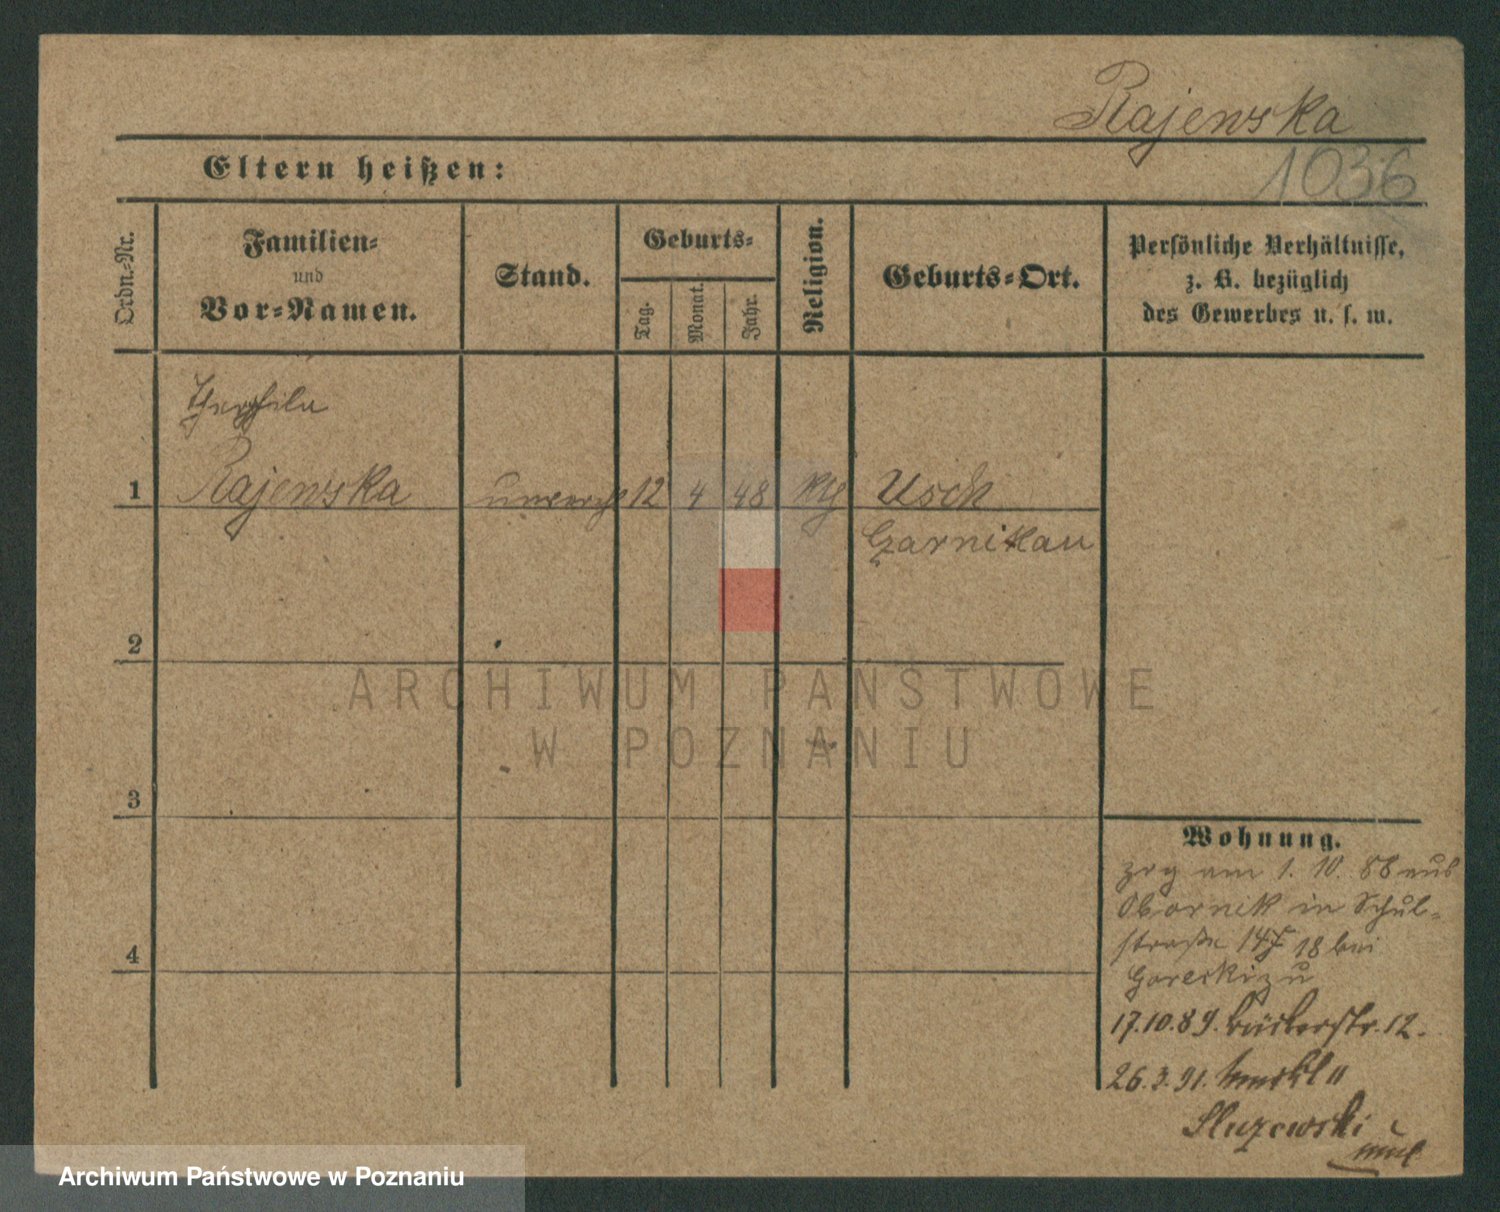 Rajewska
1036
Eltern heißen:
Ordn.-Nr.
Familien-
und
Vor-Namen.
Stand.
Geburts-
Tag.
Monat.
Jahr.
Religion.
Geburts-Ort.
Persönliche Verhältnisse,
z. B. bezüglich
des Gewerbes u. s. w.
1
Rajewska
12
4
48
Usch
Czarnikau
2
3
4
Wohnung.
zog am 1. 10. 88 aus
Obornik in Schul-
straße 18 bei
Gorecki zu
17.10.89. Bäckerstr. 12.
26.3.91.
Sluzewski
ARCHIWUM PAŃSTWOWE
W POZNANIU
Archiwum Państwowe w Poznaniu